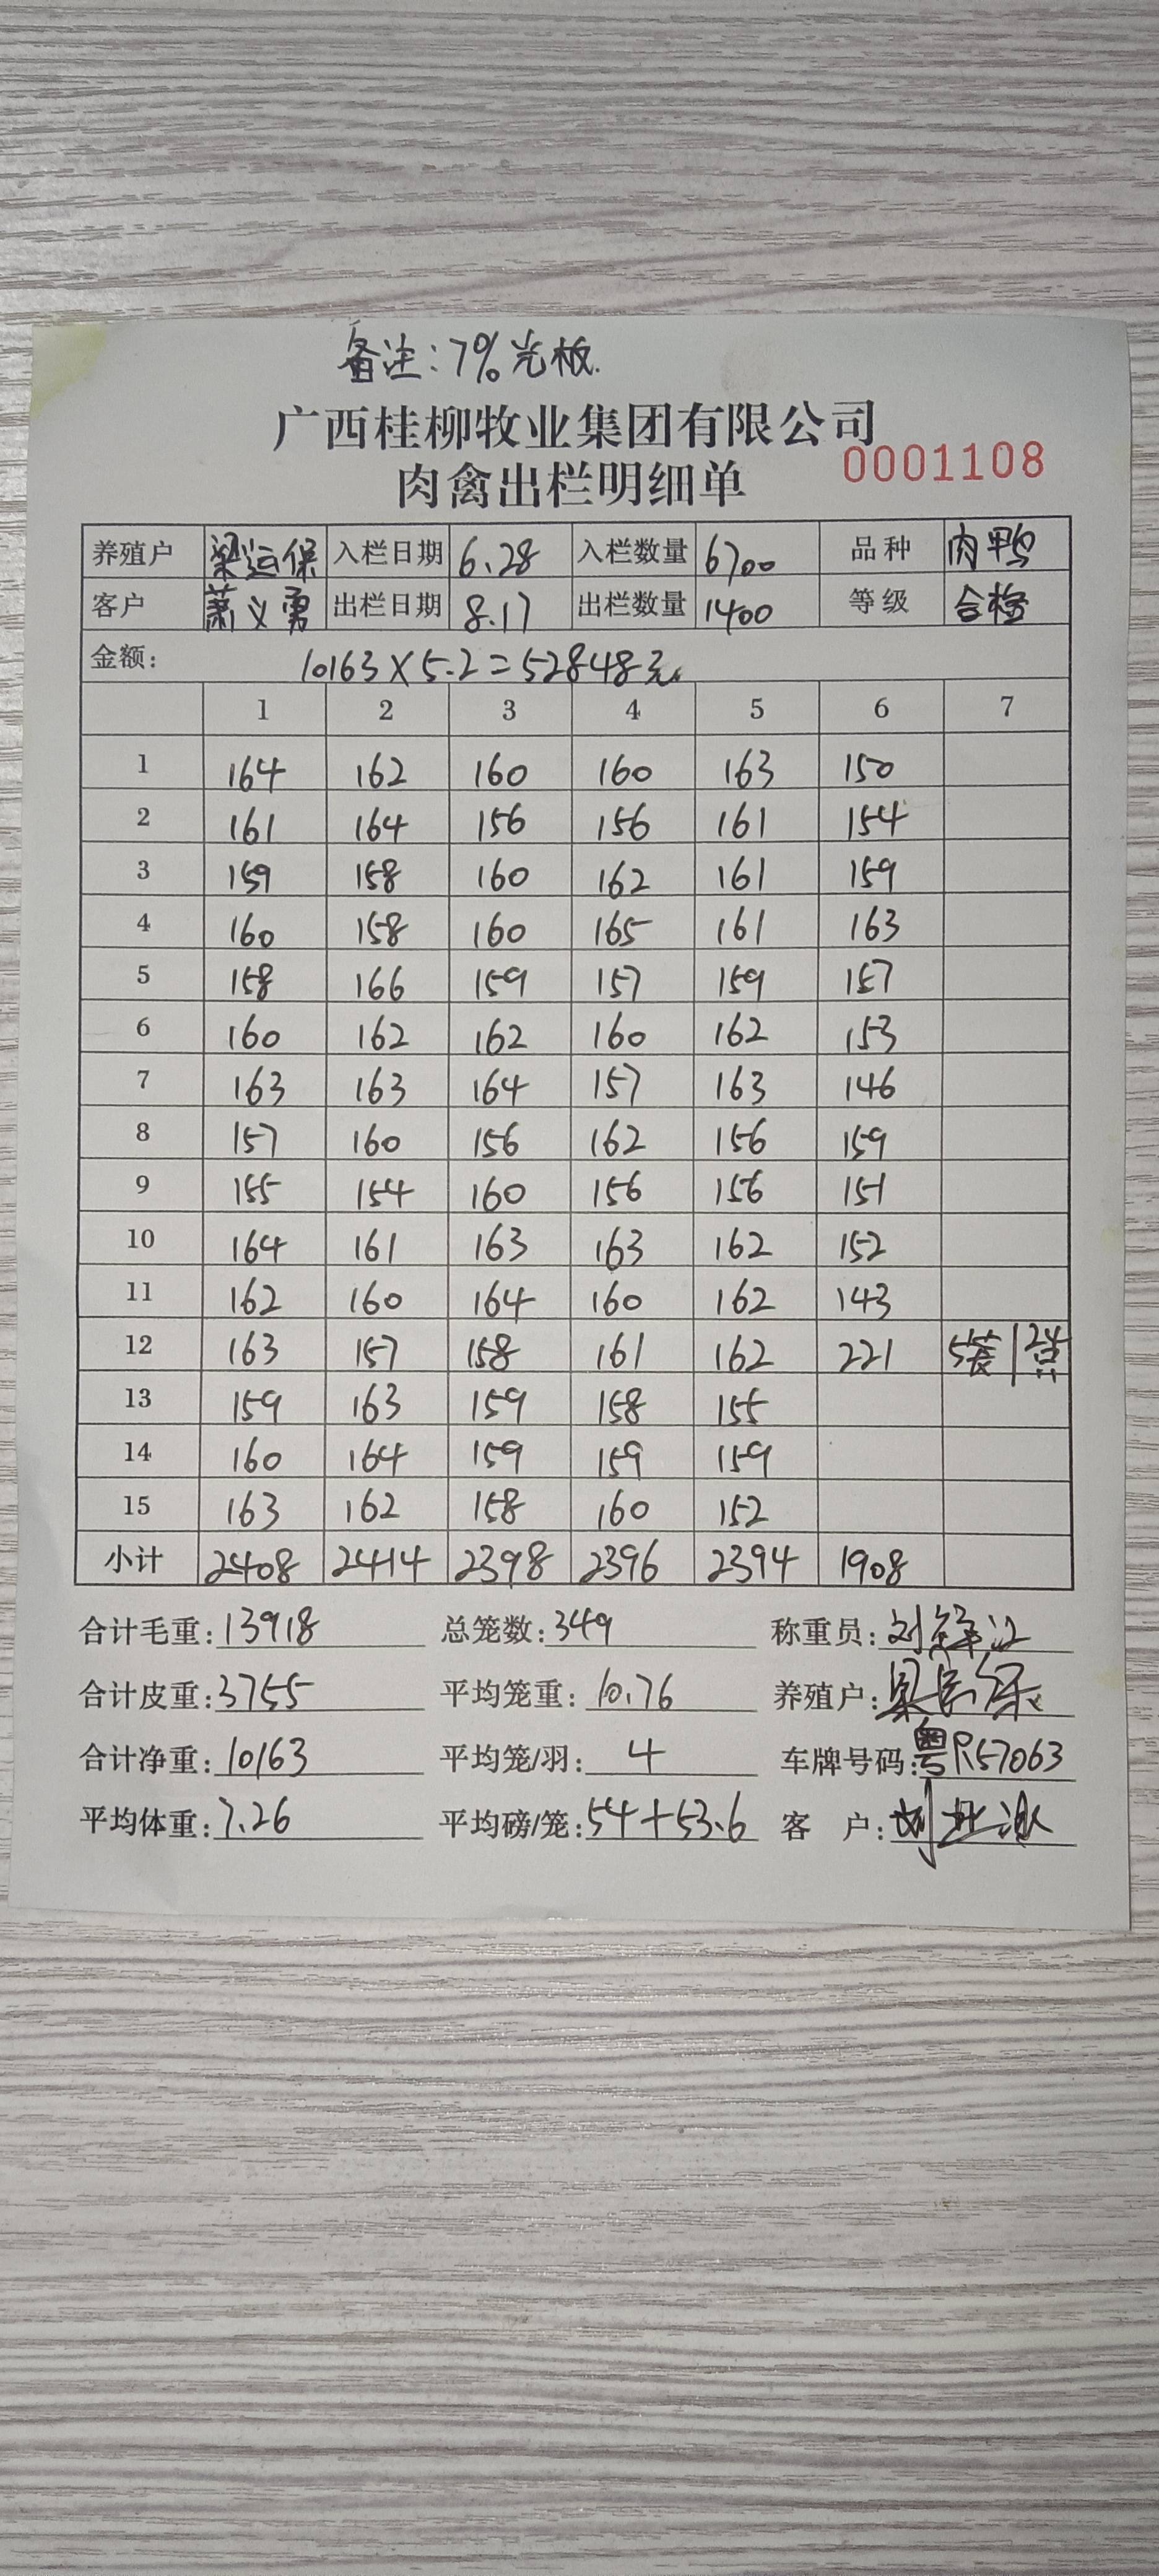 备注:7%光板.
广西桂柳牧业集团有限公司
肉禽出栏明细单 0001108
养殖户 梁运保 入栏日期 6.28 入栏数量 6700 品种 肉鸭
客户 萧义勇 出栏日期 8.17 出栏数量 1400 等级 合格
金额: 10163×5.2=52848元
1 2 3 4 5 6 7
1 164 162 160 160 163 150
2 161 164 156 156 161 154
3 159 158 160 162 161 159
4 160 158 160 165 161 163
5 158 166 159 157 159 157
6 160 162 162 160 162 153
7 163 163 164 157 163 146
8 157 160 156 162 156 159
9 155 154 160 156 156 151
10 164 161 163 163 162 152
11 162 160 164 160 162 143
12 163 157 158 161 162 221
13 159 163 159 158 155
14 160 164 159 159 159
15 163 162 158 160 152
小计 2408 2414 2398 2396 2394 1908
合计毛重:13918 总笼数:349 称重员:
合计皮重:3755 平均笼重:10.76 养殖户:
合计净重:10163 平均笼/羽:4 车牌号码:粤R57063
平均体重:7.26 平均磅/笼:54+53.6 客 户: